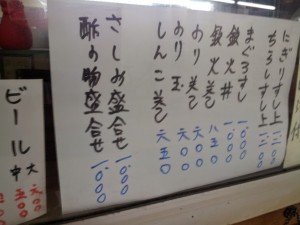 にぎりすし上 一二〇〇
ちらしすし上 一二〇〇
まぐろすし 一.〇〇〇
鉄火丼 一.〇〇〇
鉄火巻 八五〇
のり巻 六〇〇
のり玉 六〇〇
しんこ巻 六五〇
さしみ盛合せ 一.〇〇〇
酢の物盛合せ 一.〇〇〇
ビール
大 六〇〇
中 五〇〇